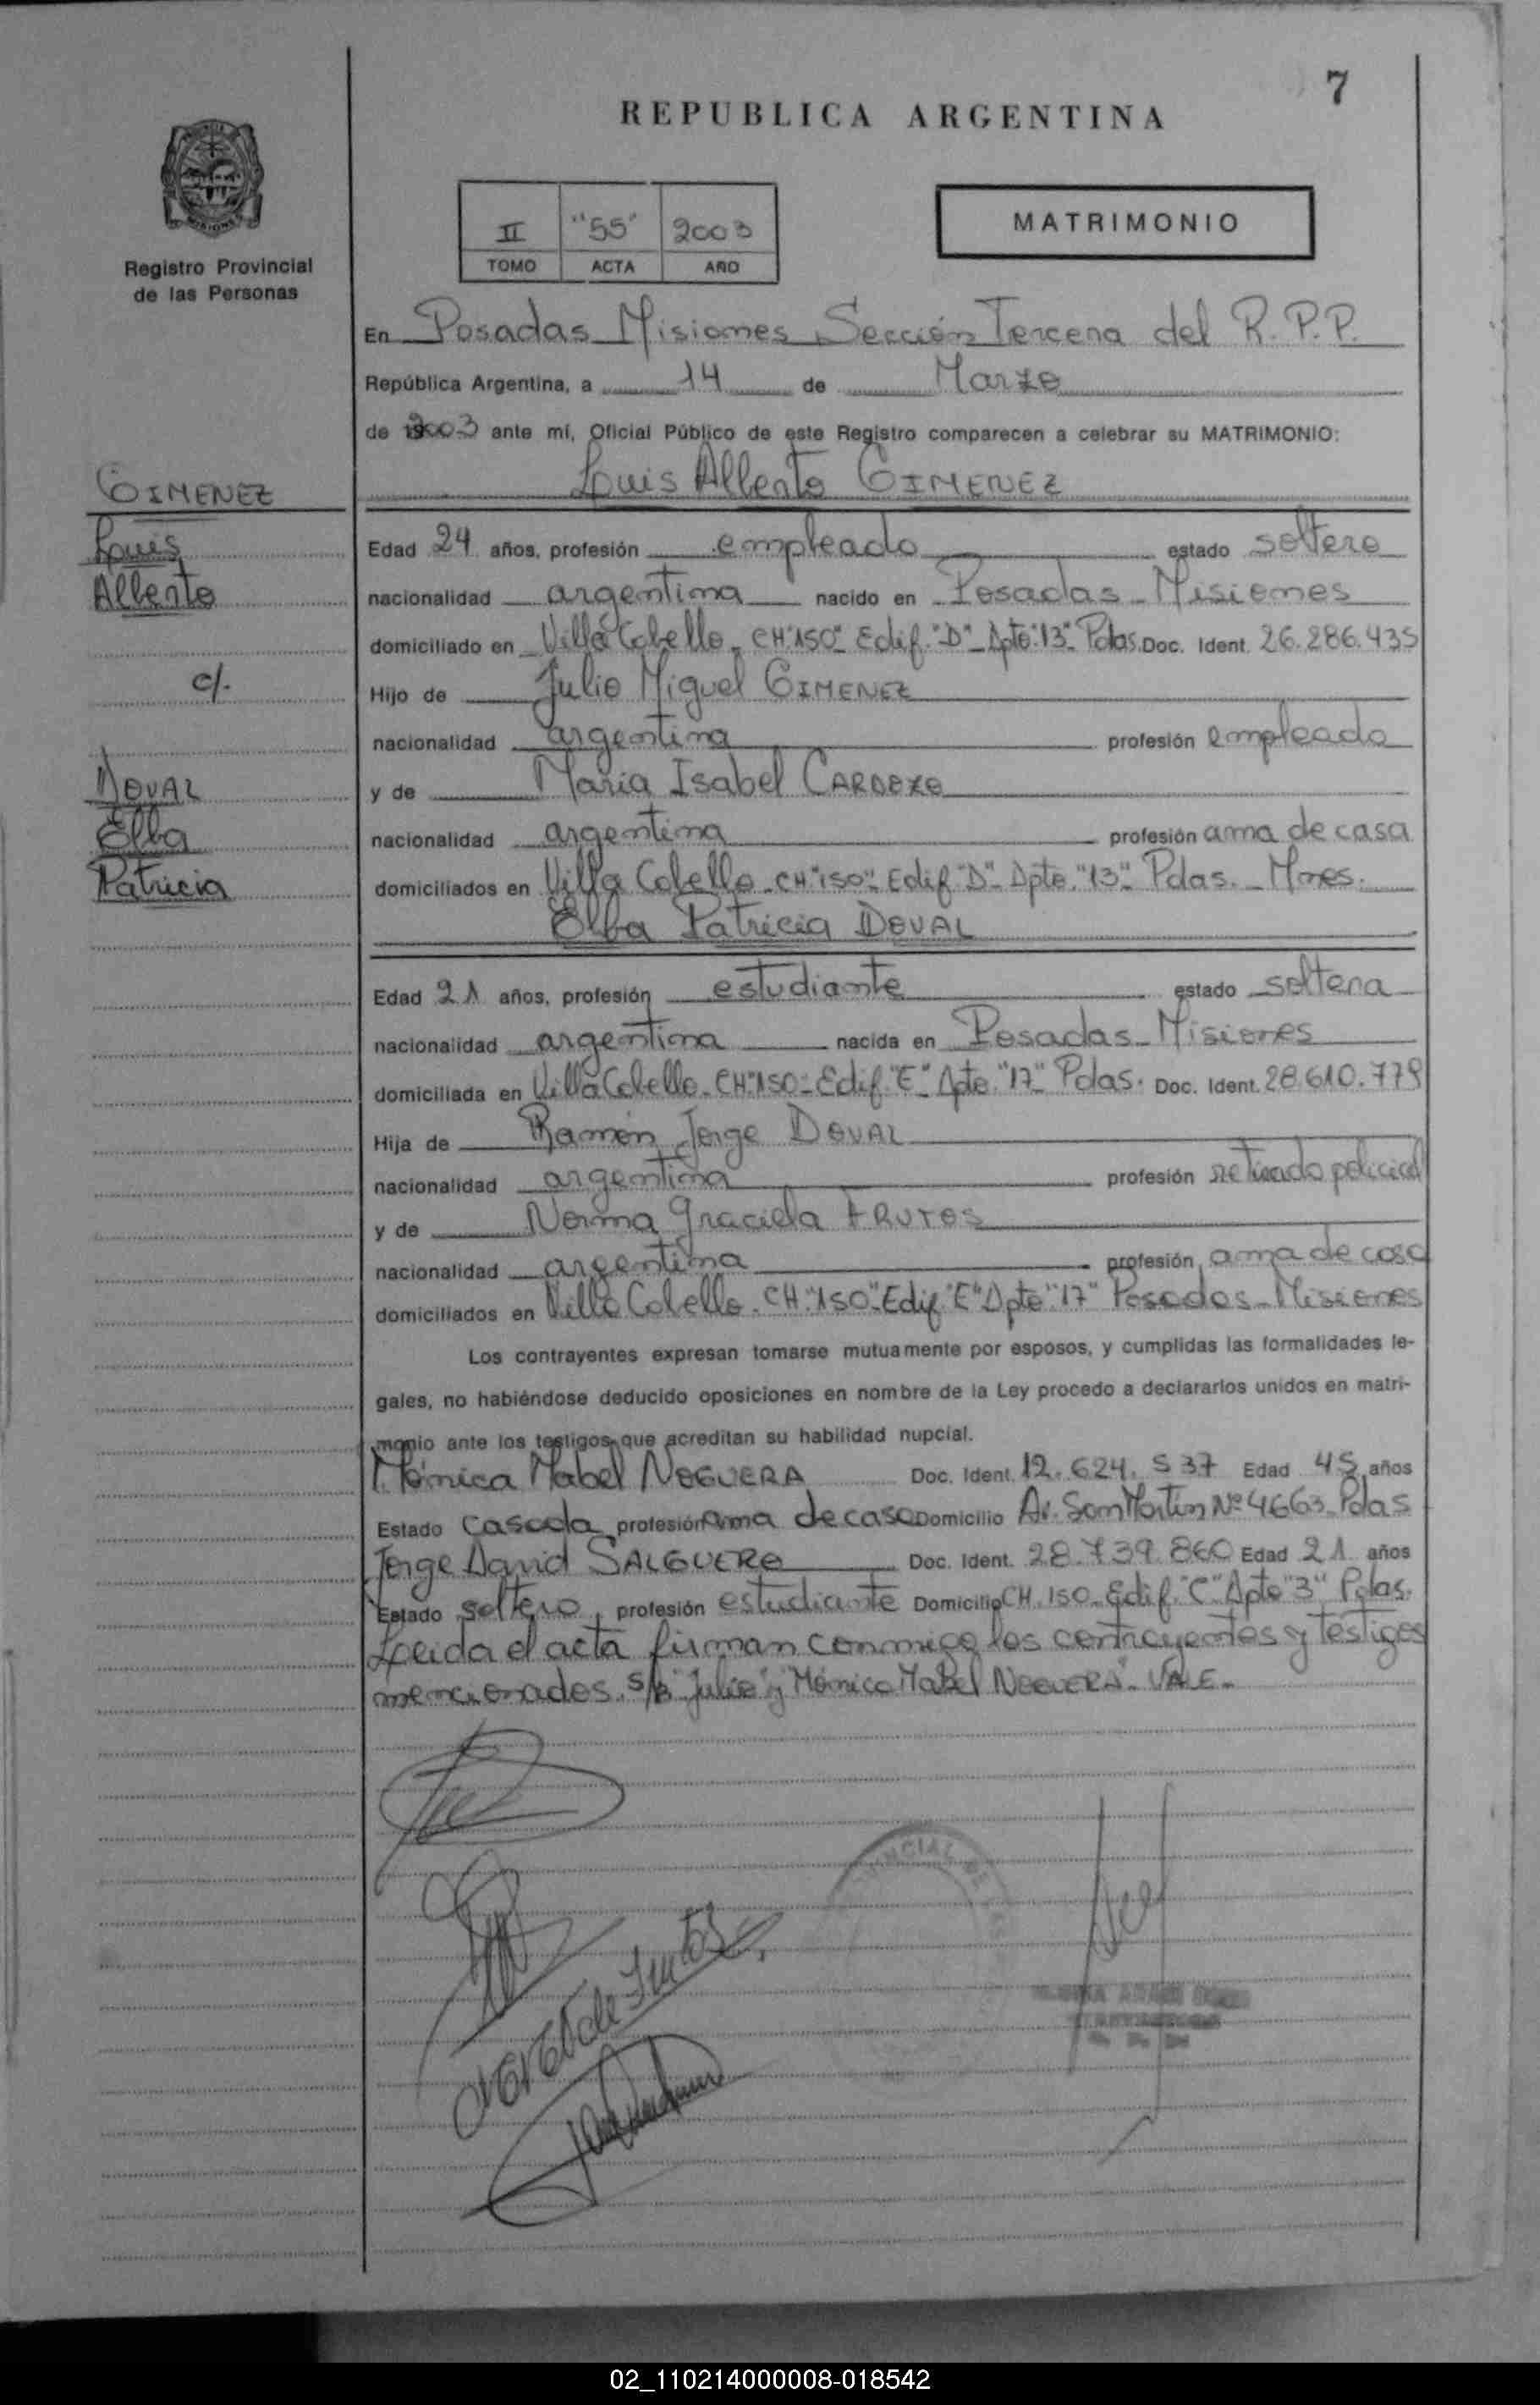 7
REPUBLICA ARGENTINA
II "55" 2003
TOMO ACTA AÑO
MATRIMONIO
Registro Provincial
de las Personas
En Posadas Misiones Sección Tercera del R.P.P.
República Argentina, a 14 de Marzo
de 2003 ante mí, Oficial Público de este Registro comparecen a celebrar su MATRIMONIO:
Luis Alberto GIMENEZ
GIMENEZ
Luis
Alberto
c/.
DOVAL
Elba
Patricia
Edad 24 años, profesión empleado estado soltero
nacionalidad argentina nacido en Posadas - Misiones
domiciliado en Villa Cabello - CH "150" - Edif. "D" - Dpto "13" - Pdas. Doc. Ident. 26.286.435
Hijo de Julio Miguel GIMENEZ
nacionalidad argentina profesión empleado
y de María Isabel CARDOZO
nacionalidad argentina profesión ama de casa
domiciliados en Villa Cabello - CH "150" - Edif "D" - Dpto. "13" - Pdas. - Mnes.
Elba Patricia DOVAL
Edad 21 años, profesión estudiante estado soltera
nacionalidad argentina nacida en Posadas - Misiones
domiciliada en Villa Cabello - CH "150" - Edif. "E" - Dpto. "17" Pdas. Doc. Ident. 28.610.779
Hija de Ramón Jorge DOVAL
nacionalidad argentina profesión retirado policial
y de Norma Graciela FRUTOS
nacionalidad argentina profesión ama de casa
domiciliados en Villa Cabello - CH. "150" - Edif "E" Dpto "17" Posadas - Misiones
Los contrayentes expresan tomarse mutuamente por esposos, y cumplidas las formalidades le-
gales, no habiéndose deducido oposiciones en nombre de la Ley procedo a declararlos unidos en matri-
monio ante los testigos que acreditan su habilidad nupcial.
Mónica Mabel NOGUERA Doc. Ident. 12.624.537 Edad 45 años
Estado casada profesión ama de casa Domicilio Av. San Martín Nº 4663 - Pdas
Jorge David SALGUERO Doc. Ident. 28.739.860 Edad 21 años
Estado soltero, profesión estudiante Domicilio CH. 150 - Edif. "C" Dpto "3" Pdas.
Leída el acta firman conmigo los contrayentes y testigos
mencionados. s/b "Julio" y "Mónica Mabel NOGUERA" - VALE -
02_110214000008-018542